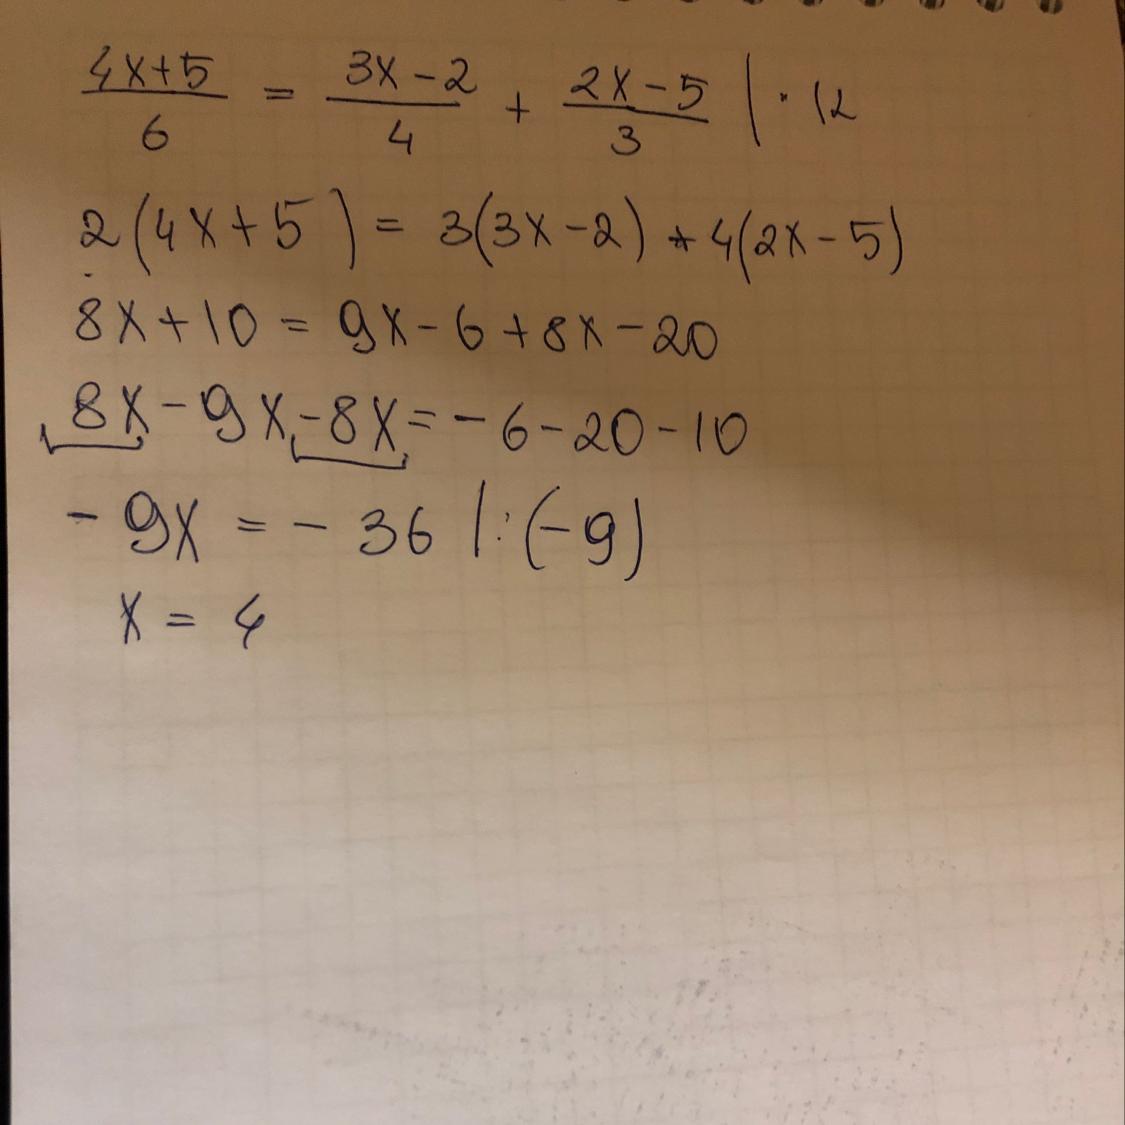 (4x+5)/6 = (3x-2)/4 + (2x-5)/3 | · 12
2(4x+5) = 3(3x-2) + 4(2x-5)
8x+10 = 9x-6+8x-20
8x-9x-8x=-6-20-10
-9x = -36 |:(-9)
x = 4